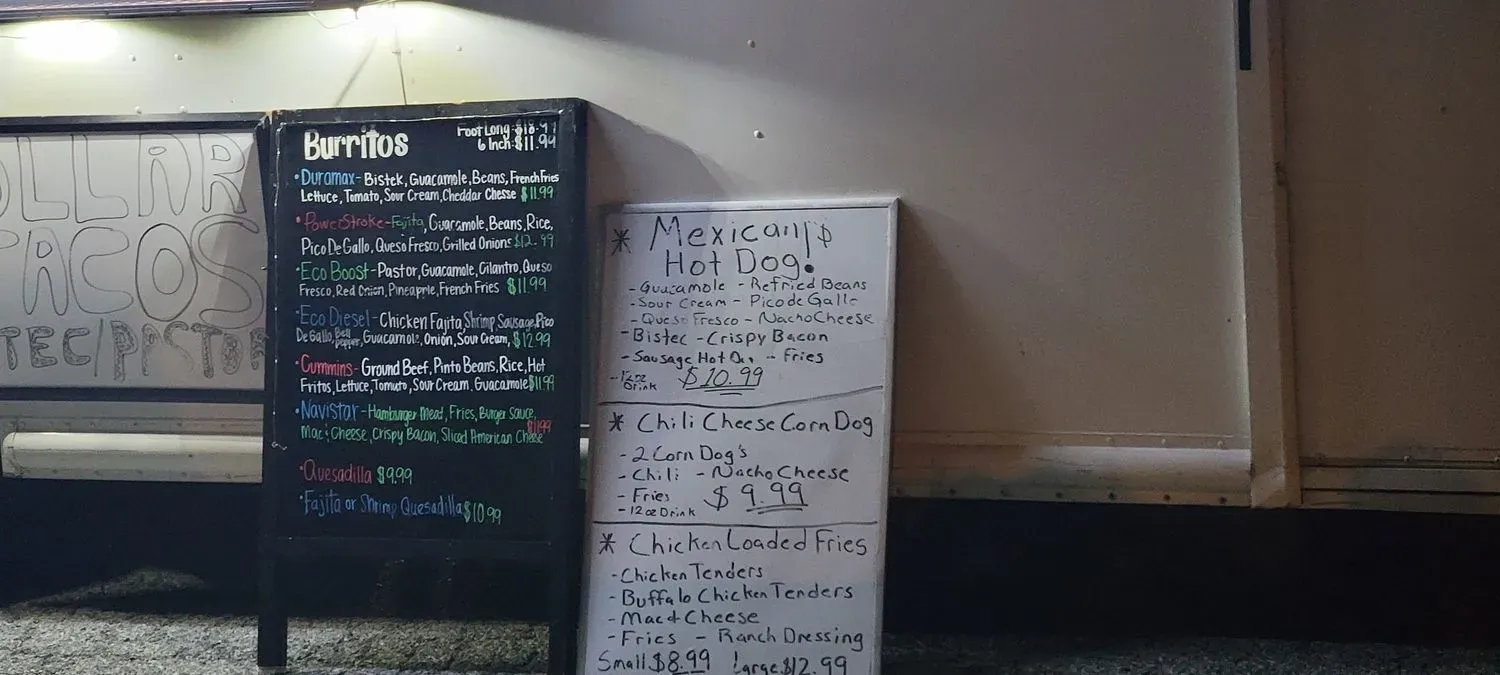 OLLAR
TACOS
TEC/PASTOR
Burritos
Foot Long-$18.99
6 Inch:$11.99
•Duramax- Bistek, Guacamole, Beans, French Fries
Lettuce, Tomato, Sour Cream, Cheddar Chesse $11.99
•PowerStroke-Fajita, Guacamole, Beans, Rice,
Pico De Gallo, Queso Fresco, Grilled Onions $12.99
•Eco Boost-Pastor, Guacamole, Cilantro, Queso
Fresco, Red Onion, Pineapple, French Fries $11.99
•Eco Diesel- Chicken Fajita, Shrimp Sausage, Pico
De Gallo, Bell Pepper, Guacamole, Onion, Sour Cream, $12.99
•Cummins- Ground Beef, Pinto Beans, Rice, Hot
Fritos, Lettuce, Tomato, Sour Cream, Guacamole $11.99
•Navistar-Hamburger Meat, Fries, Burger Sauce,
Mac & Cheese, Crispy Bacon, Sliced American Cheese $11.99
•Quesadilla $9.99
•Fajita or Shrimp Quesadilla $10.99
* Mexican
Hot Dog!
- Guacamole - Refried Beans
- Sour Cream - Pico de Gallo
- Queso Fresco - Nacho Cheese
- Bistec - Crispy Bacon
- Sausage Hot - Fries
- 12oz Drink $10.99
* Chili Cheese Corn Dog
- 2 Corn Dog's
- Chili - Nacho Cheese
- Fries $9.99
- 12oz Drink
* Chicken Loaded Fries
- Chicken Tenders
- Buffalo Chicken Tenders
- Mac & Cheese
- Fries - Ranch Dressing
Small $8.99 Large $12.99